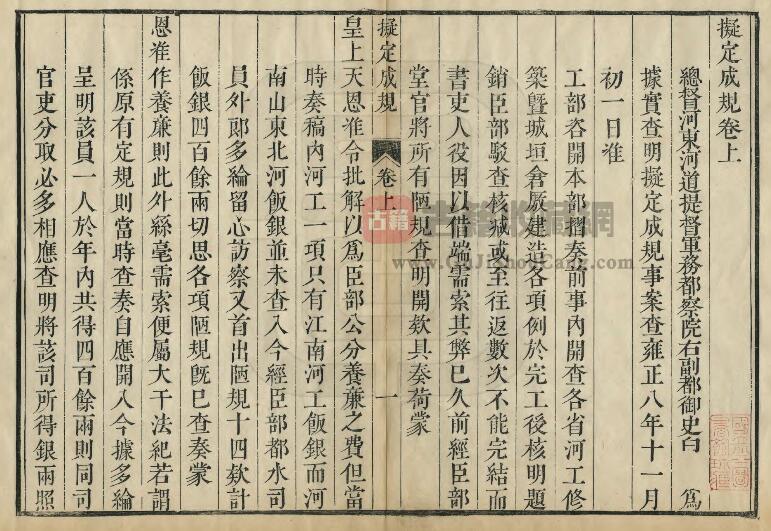 擬定成規卷上
總督河東河道提督軍務都察院右副都御史白　爲
據實查明擬定成規事案查雍正八年十一月
初一日准
工部咨開本部摺奏前事內開查各省河工修
築暨城垣倉厫建造各項例於完工後核明題
銷臣部駁查核减或至往返數次不能完結而
書吏人役因以借端需索其弊巳久前經臣部
堂官將所有陋規查明開欵具奏荷蒙
擬定成規　卷上　一
皇上天恩准令批解以爲臣部公分養廉之費但當
時奏稿內河工一項只有江南河工飯銀而河
南山東北河飯銀並未查入今經臣部都水司
員外郎多綸留心訪察又首出陋規十四欵計
飯銀四百餘兩切思各項陋規旣巳查奏蒙
恩准作養廉則此外絲毫需索便屬大干法紀若謂
係原有定規則當時查奏自應開入今據多綸
呈明該員一人於年內共得四百餘兩則同司
官吏分取必多相應查明將該司所得銀兩照
古籍 古籍收藏網
www.GuJiShouCang.com